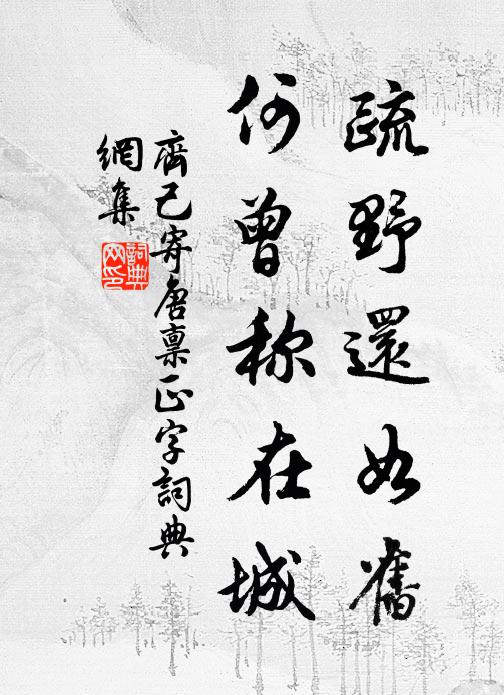 疏野還如舊
何曾称在城
齊己寄唐稟正字詞典
網集
詞典
网印